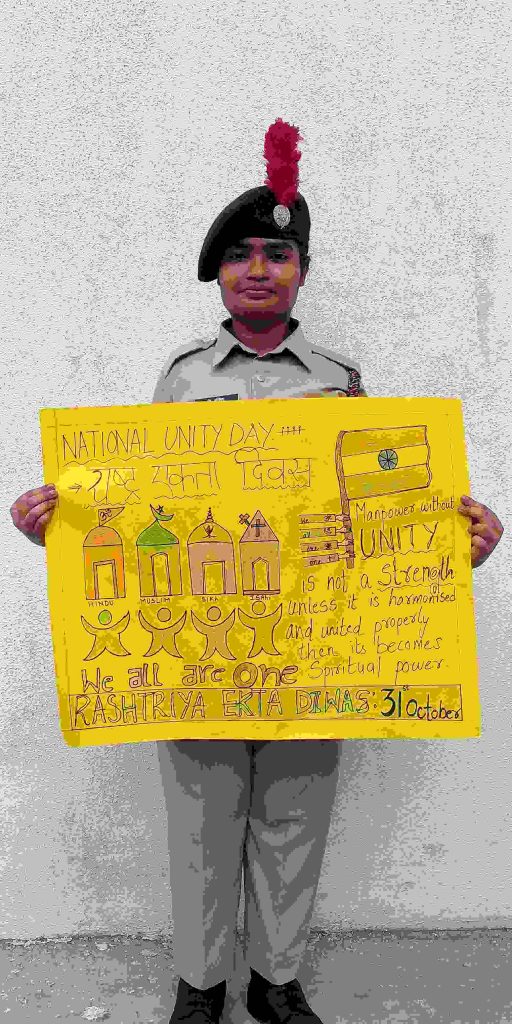 NATIONAL UNITY DAY
राष्ट्र एकता दिवस
HINDU MUSLIM SIKH ISAHI
We all are One
We
all
are
one
Manpower without
UNITY
is not a Strength
unless it is harmonised
and united properly
then its becomes
Spiritual power.
RASHTRIYA EKTA DIWAS: 31st October